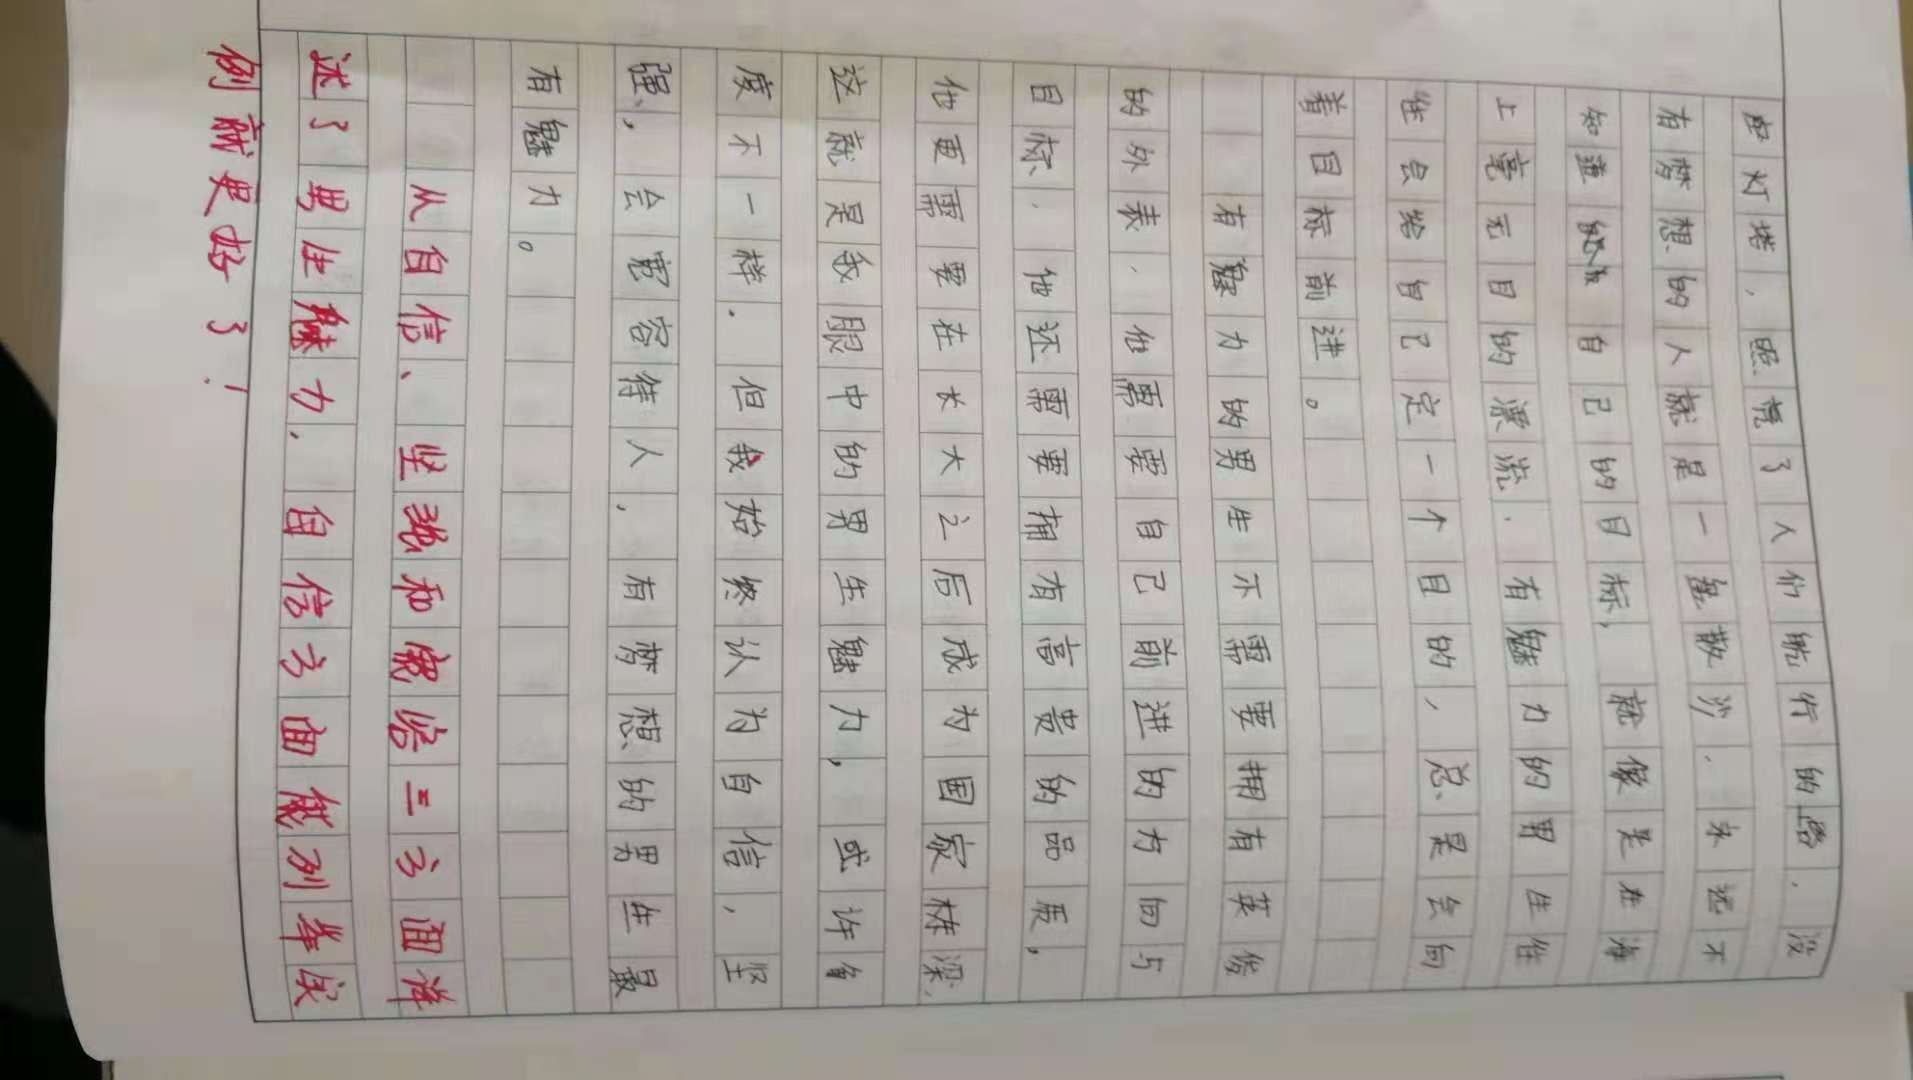 灯塔，照亮了人们航行的路，没
有梦想的人就是一盘散沙，永远不
知道自己的目标，就像是在海
上毫无目的的漂流，有魅力的男生往
往会给自己定一个目的，总是会向
着目标前进。
有魅力的男生不需要拥有英俊
的外表，他需要自己前进的方向与
目标，他还需要拥有高贵的品质，
他更需要在长大之后成为国家栋梁，
这就是我眼中的男生魅力，或许角
度不一样，但我始终认为自信，坚
强，会宽容待人，有梦想的男生最
有魅力。
从自信、坚强和宽容三方面详
述了男生魅力，自信方面能列举实
例就更好了！